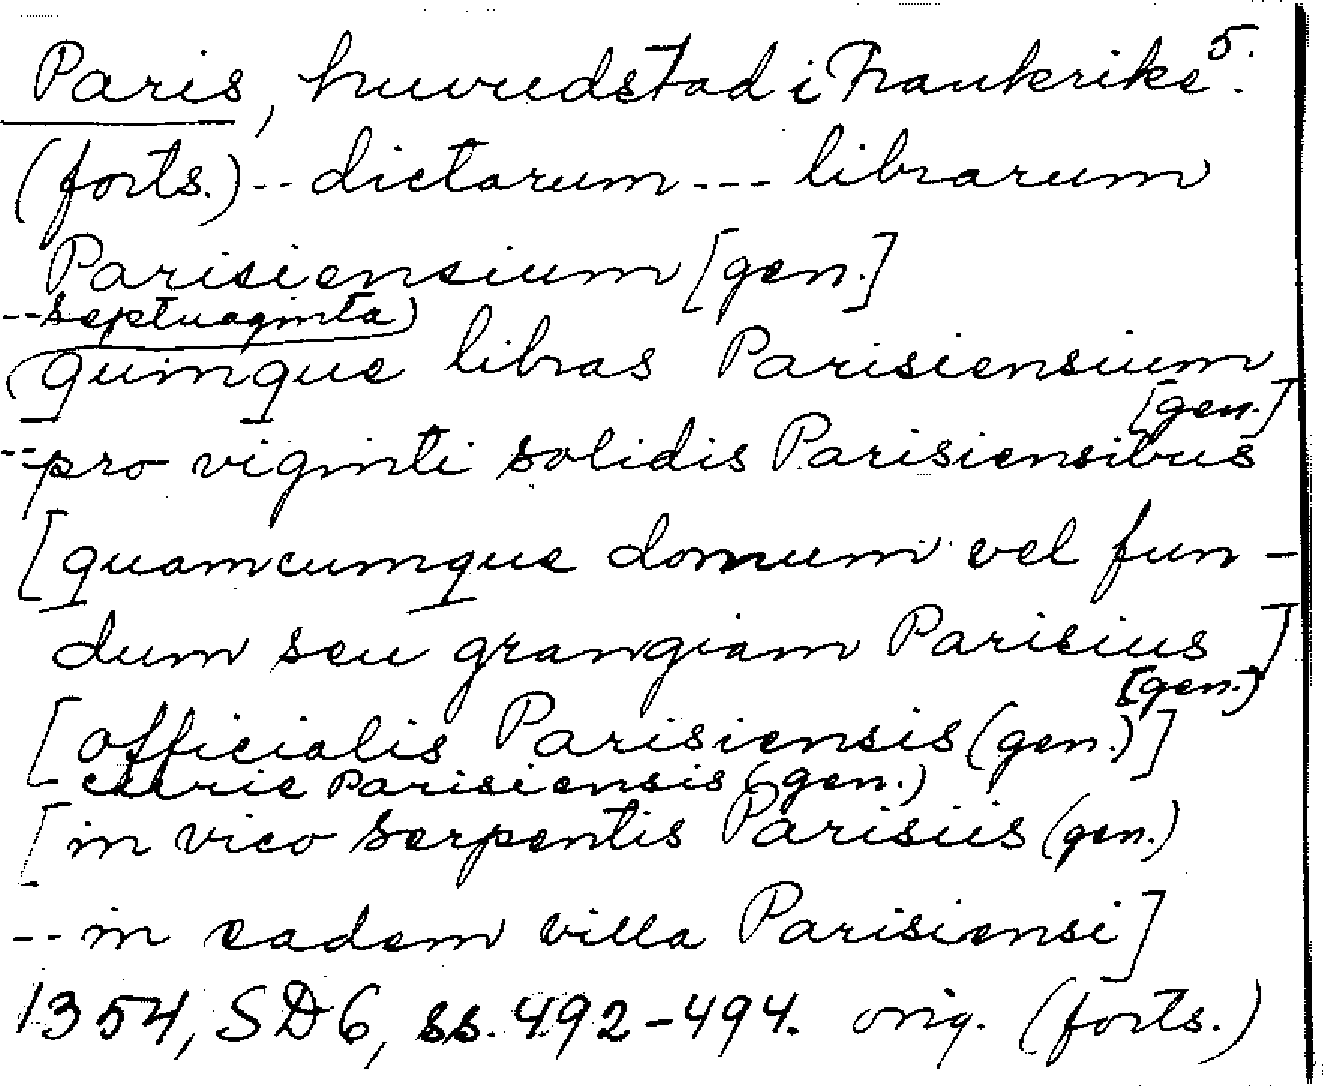 Paris, huvudstad i Frankrike. 5.
(forts.) -- dictarum --- librarum
Parisiensium [gen.]
-- septuaginta
quinque libras Parisiensium
[gen.]
-- pro viginti solidis Parisiensibus
[quamcumque domum vel fun-
dum seu grangiam Parisius]
[gen.)
[officialis Parisiensis (gen.)]
- curie Parisiensis (gen.)
[in vico Serpentis Parisiis (gen.)
-- in eadem villa Parisiensi]
1354, SD 6, ss. 492-494. orig. (forts.)